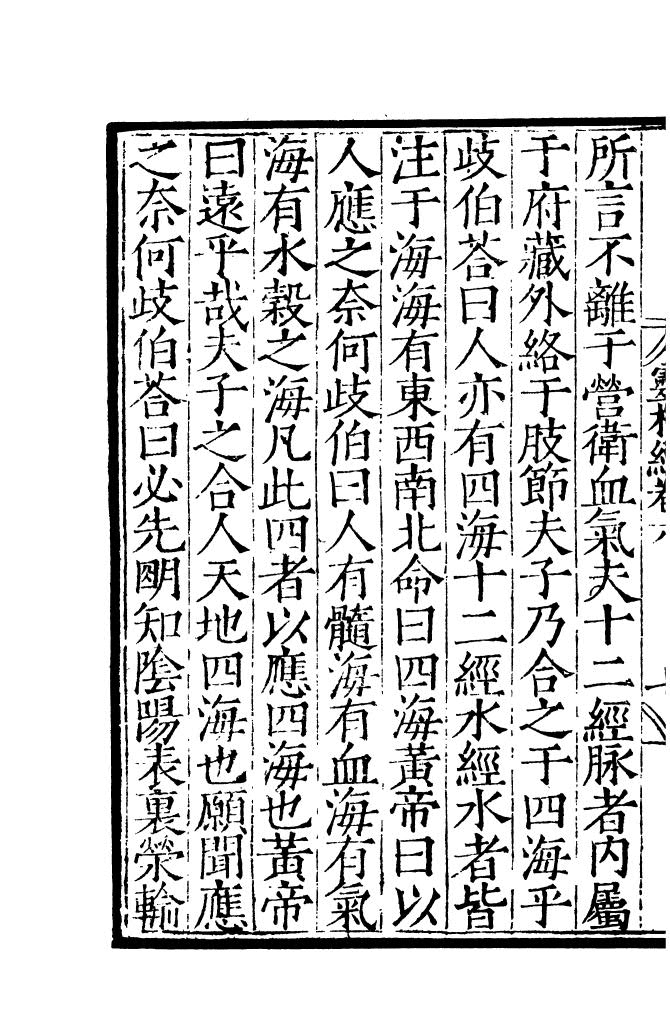 靈樞經卷六
所言不離于營衛血氣夫十二經脉者內屬
于府藏外絡于肢節夫子乃合之于四海乎
歧伯荅曰人亦有四海十二經水經水者皆
注于海海有東西南北命曰四海黃帝曰以
人應之奈何歧伯曰人有髓海有血海有氣
海有水榖之海凡此四者以應四海也黃帝
曰遠乎哉夫子之合人天地四海也願聞應
之奈何歧伯荅曰必先明知陰陽表裏滎輸